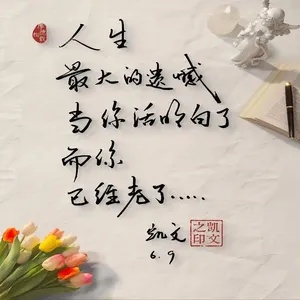 人生
最大的遗憾
当你活明白了
而你
已经老了.....
凯文
6.9
凯文之印